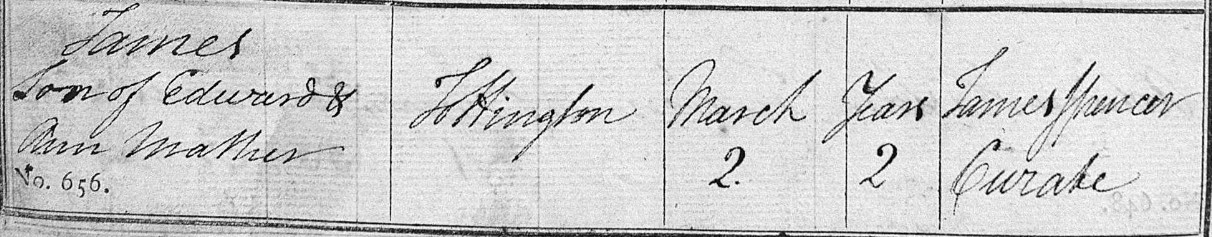 James
Son of Edward &
Ann Mather
No. 656.
Tottington
March
2.
Years
2
James Spencer
Curate